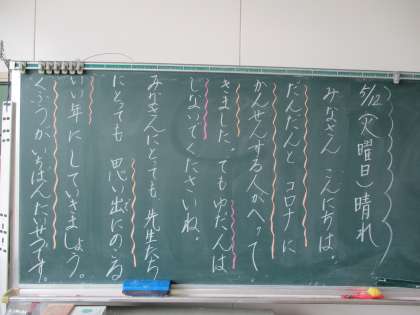 5/12(火曜日)晴れ
みなさん こんにちは。
だんだんと コロナに
かんせんする人がへって
きました。でもゆだんは
しないでくださいね。
みなさんにとっても 先生たち
にとっても 思い出にのこる
いい年に していきましょう。
くふうが いちばんたいせつです。